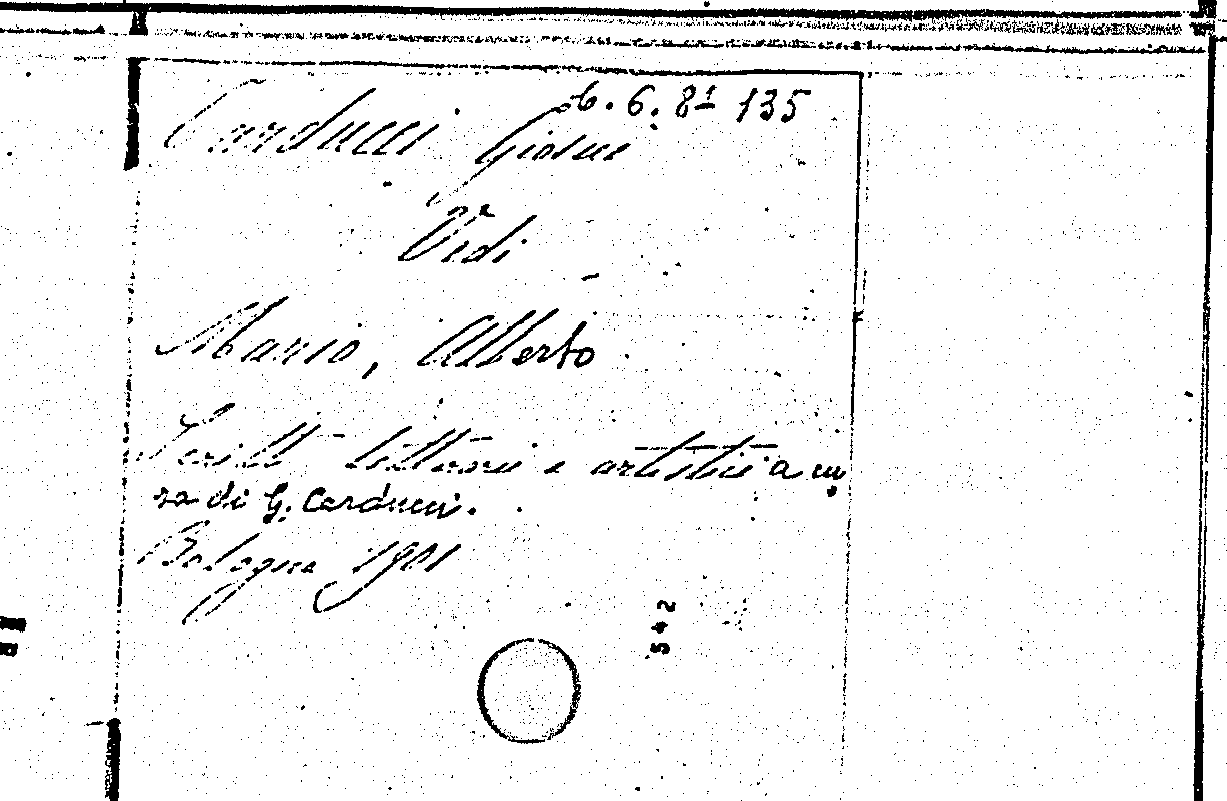 b. 6. 8ª 135
Carducci Giosue
Vedi
Mario, Alberto
Scritti letterari e artistici a cu
ra di G. Carducci.
Bologna 1901
542